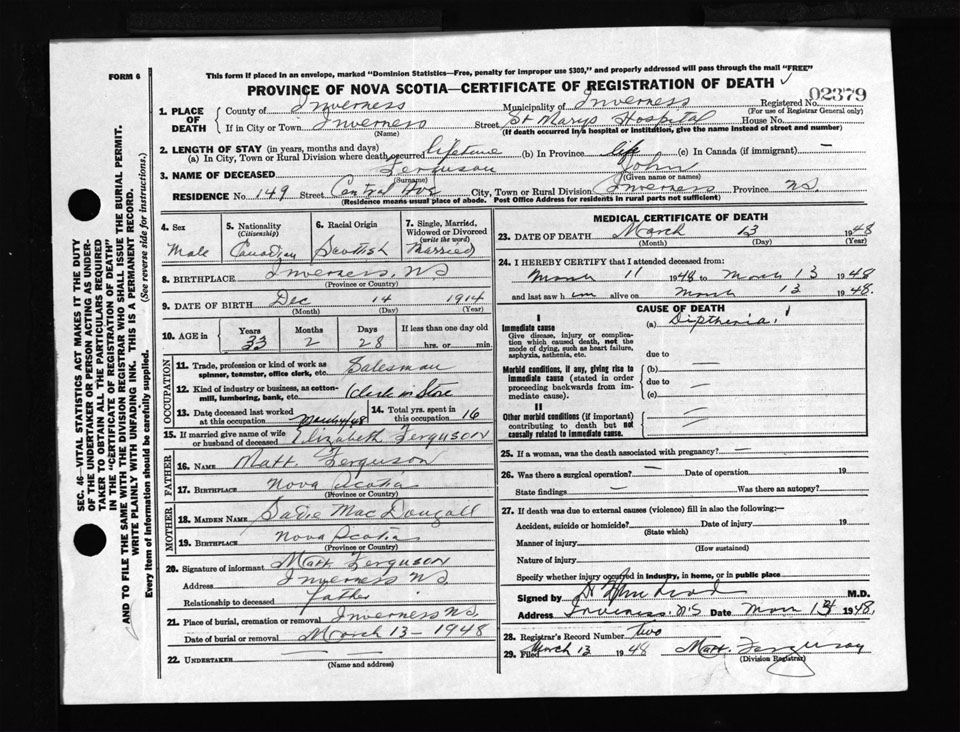 FORM 6
This form if placed in an envelope, marked "Dominion Statistics—Free, penalty for improper use $300," and properly addressed will pass through the mail "FREE"
PROVINCE OF NOVA SCOTIA—CERTIFICATE OF REGISTRATION OF DEATH
02379
SEC. 46—VITAL STATISTICS ACT MAKES IT THE DUTY
OF THE UNDERTAKER OR PERSON ACTING AS UNDER-
TAKER TO OBTAIN ALL THE PARTICULARS REQUIRED
IN THE "CERTIFICATE OF REGISTRATION OF DEATH"
AND TO FILE THE SAME WITH THE DIVISION REGISTRAR WHO SHALL ISSUE THE BURIAL PERMIT.
WRITE PLAINLY WITH UNFADING INK. THIS IS A PERMANENT RECORD.
Every item of information should be carefully supplied. (See reverse side for instructions.)
1. PLACE OF DEATH
County of Inverness Municipality of Inverness Registered No.
(For use of Registrar General only)
If in City or Town Inverness Street St Marys Hospital House No.
(Name) (If death occurred in a hospital or institution, give the name instead of street and number)
2. LENGTH OF STAY (in years, months and days)
(a) In City, Town or Rural Division where death occurred lifetime (b) In Province life (c) In Canada (if immigrant) —
3. NAME OF DECEASED Ferguson John
(Surname) (Given name or names)
RESIDENCE No. 149 Street Central Ave City, Town or Rural Division Inverness Province NS
(Residence means usual place of abode. Post Office Address for residents in rural parts not sufficient)
4. Sex
Male
5. Nationality
(Citizenship)
Canadian
6. Racial Origin
Scottish
7. Single, Married,
Widowed or Divorced
(write the word)
Married
8. BIRTHPLACE Inverness, NS
(Province or Country)
9. DATE OF BIRTH Dec 14 1914
(Month) (Day) (Year)
10. AGE in
Years Months Days If less than one day old
33 2 28 hrs. or min.
OCCUPATION
11. Trade, profession or kind of work as
spinner, teamster, office clerk, etc. Salesman
12. Kind of industry or business, as cotton-
mill, lumbering, bank, etc. Clerk in Store
13. Date deceased last worked
at this occupation
14. Total yrs. spent
in this occupation 16
15. If married give name of wife
or husband of deceased Elizabeth Ferguson
FATHER
16. NAME Matt. Ferguson
17. BIRTHPLACE Nova Scotia
(Province or Country)
MOTHER
18. MAIDEN NAME Sadie MacDougall
19. BIRTHPLACE Nova Scotia
(Province or Country)
20. Signature of informant Matt Ferguson
Address Inverness NS.
Relationship to deceased father
21. Place of burial, cremation or removal Inverness NS.
Date of burial or removal March 13 — 1948
22. UNDERTAKER
(Name and address)
MEDICAL CERTIFICATE OF DEATH
23. DATE OF DEATH March 13 1948
(Month) (Day) (Year)
24. I HEREBY CERTIFY that I attended deceased from:
March 11 1948 to March 13 1948
and last saw him alive on March 13 1948.
CAUSE OF DEATH
I
Immediate cause (a) Diptheria.
Give disease, injury or complica-
tion which caused death, not the
mode of dying, such as heart failure,
asphyxia, asthenia, etc. due to —
Morbid conditions, if any, giving rise to (b)
immediate cause (stated in order due to —
proceeding backwards from im-
mediate cause). (c)
II
Other morbid conditions (if important)
contributing to death but not
causally related to immediate cause.
25. If a woman, was the death associated with pregnancy? —
26. Was there a surgical operation? — Date of operation 19
State findings — Was there an autopsy?
27. If death was due to external causes (violence) fill in also the following:—
Accident, suicide or homicide? Date of injury 19
(State which)
Manner of injury
(How sustained)
Nature of injury
Specify whether injury occurred in industry, in home, or in public place
Signed by M.D.
Address Inverness. N.S Date 1948.
28. Registrar's Record Number Two
29. Filed March 13 1948 Matt. Ferguson
(Division Registrar)